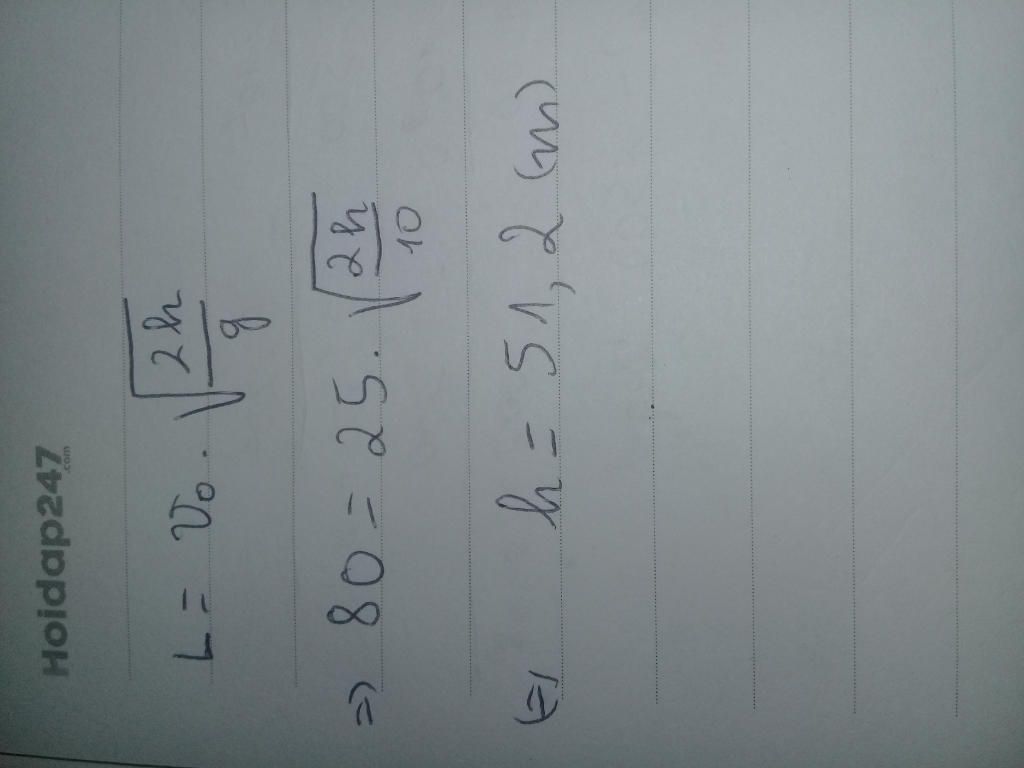 Hoidap247
.com
L = v₀ . √(2h/g)
⇒ 80 = 25 . √(2h/10)
(=) h = 51,2 (m)